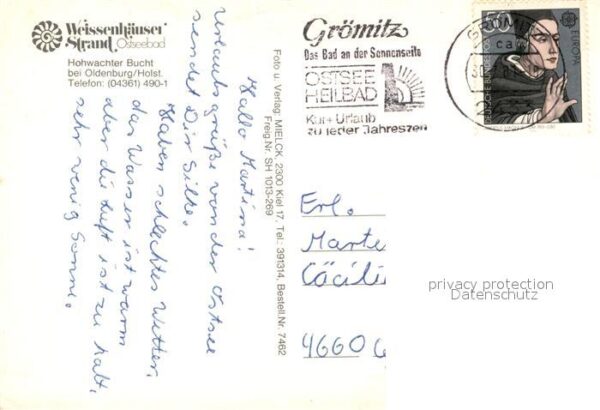 Weissenhäuser
Strand Ostseebad
Hohwachter Bucht
bei Oldenburg/Holst.
Telefon: (04361) 490-1
Hallo Martina!
Urlaubsgrüße von der Ostsee
sendet Dir Silke.
Haben schlechtes Wetter,
das Wasser ist warm
aber die Luft ist zu kalt,
sehr wenig Sonne.
Foto u. Verlag: MIELCK, 2300 Kiel 17, Tel.: 391314, Bestell.Nr. 7462
Freig.Nr. SH 1013-269
Grömitz
Das Bad an der Sonnenseite
OSTSEE
HEILBAD
Kur + Urlaub
zu jeder Jahreszeit
50
EUROPA
Erl.
Marte
Cäcili
4660 G
privacy protection
Datenschutz